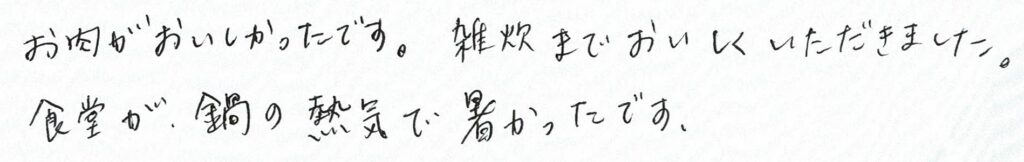 お肉がおいしかったです。 雑炊までおいしくいただきました。
食堂が、鍋の熱気で暑かったです、